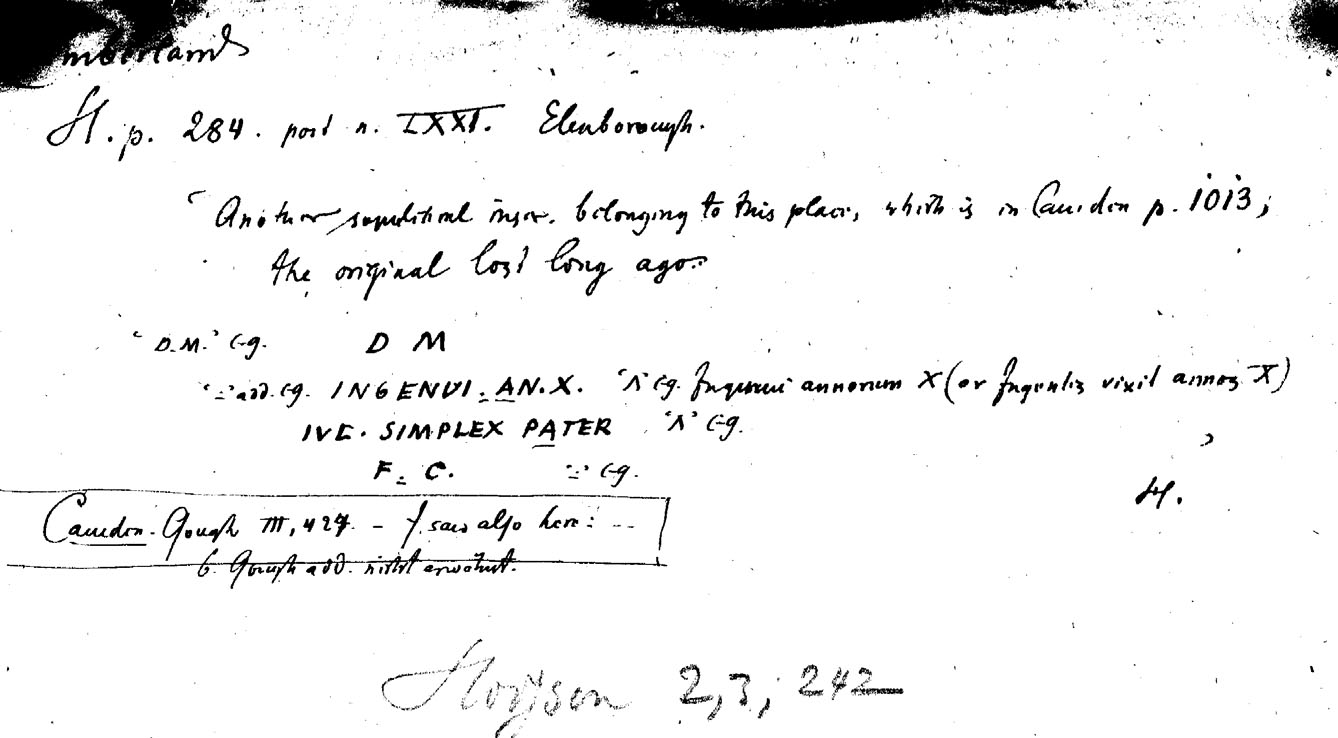 mberland
H. p. 284. post n. LXXI. Elenborough.
"Another sepulchral inscr. belonging to this place, which is in Camden p. 1013;
the original lost long ago.
'D.M.' Cg. D M
add. Cg. INGENVI. AN. X. 'Λ' Cg. Ingenui annorum X (or Ingenuus vixit annos X)
IVL. SIMPLEX PATER 'Λ' Cg.
F. C. Cg.
H.
Camden-Gough III, 427. - I saw also here: ...
b. Gough add. nicht erwähnt.
Hodgson 2,3, 242